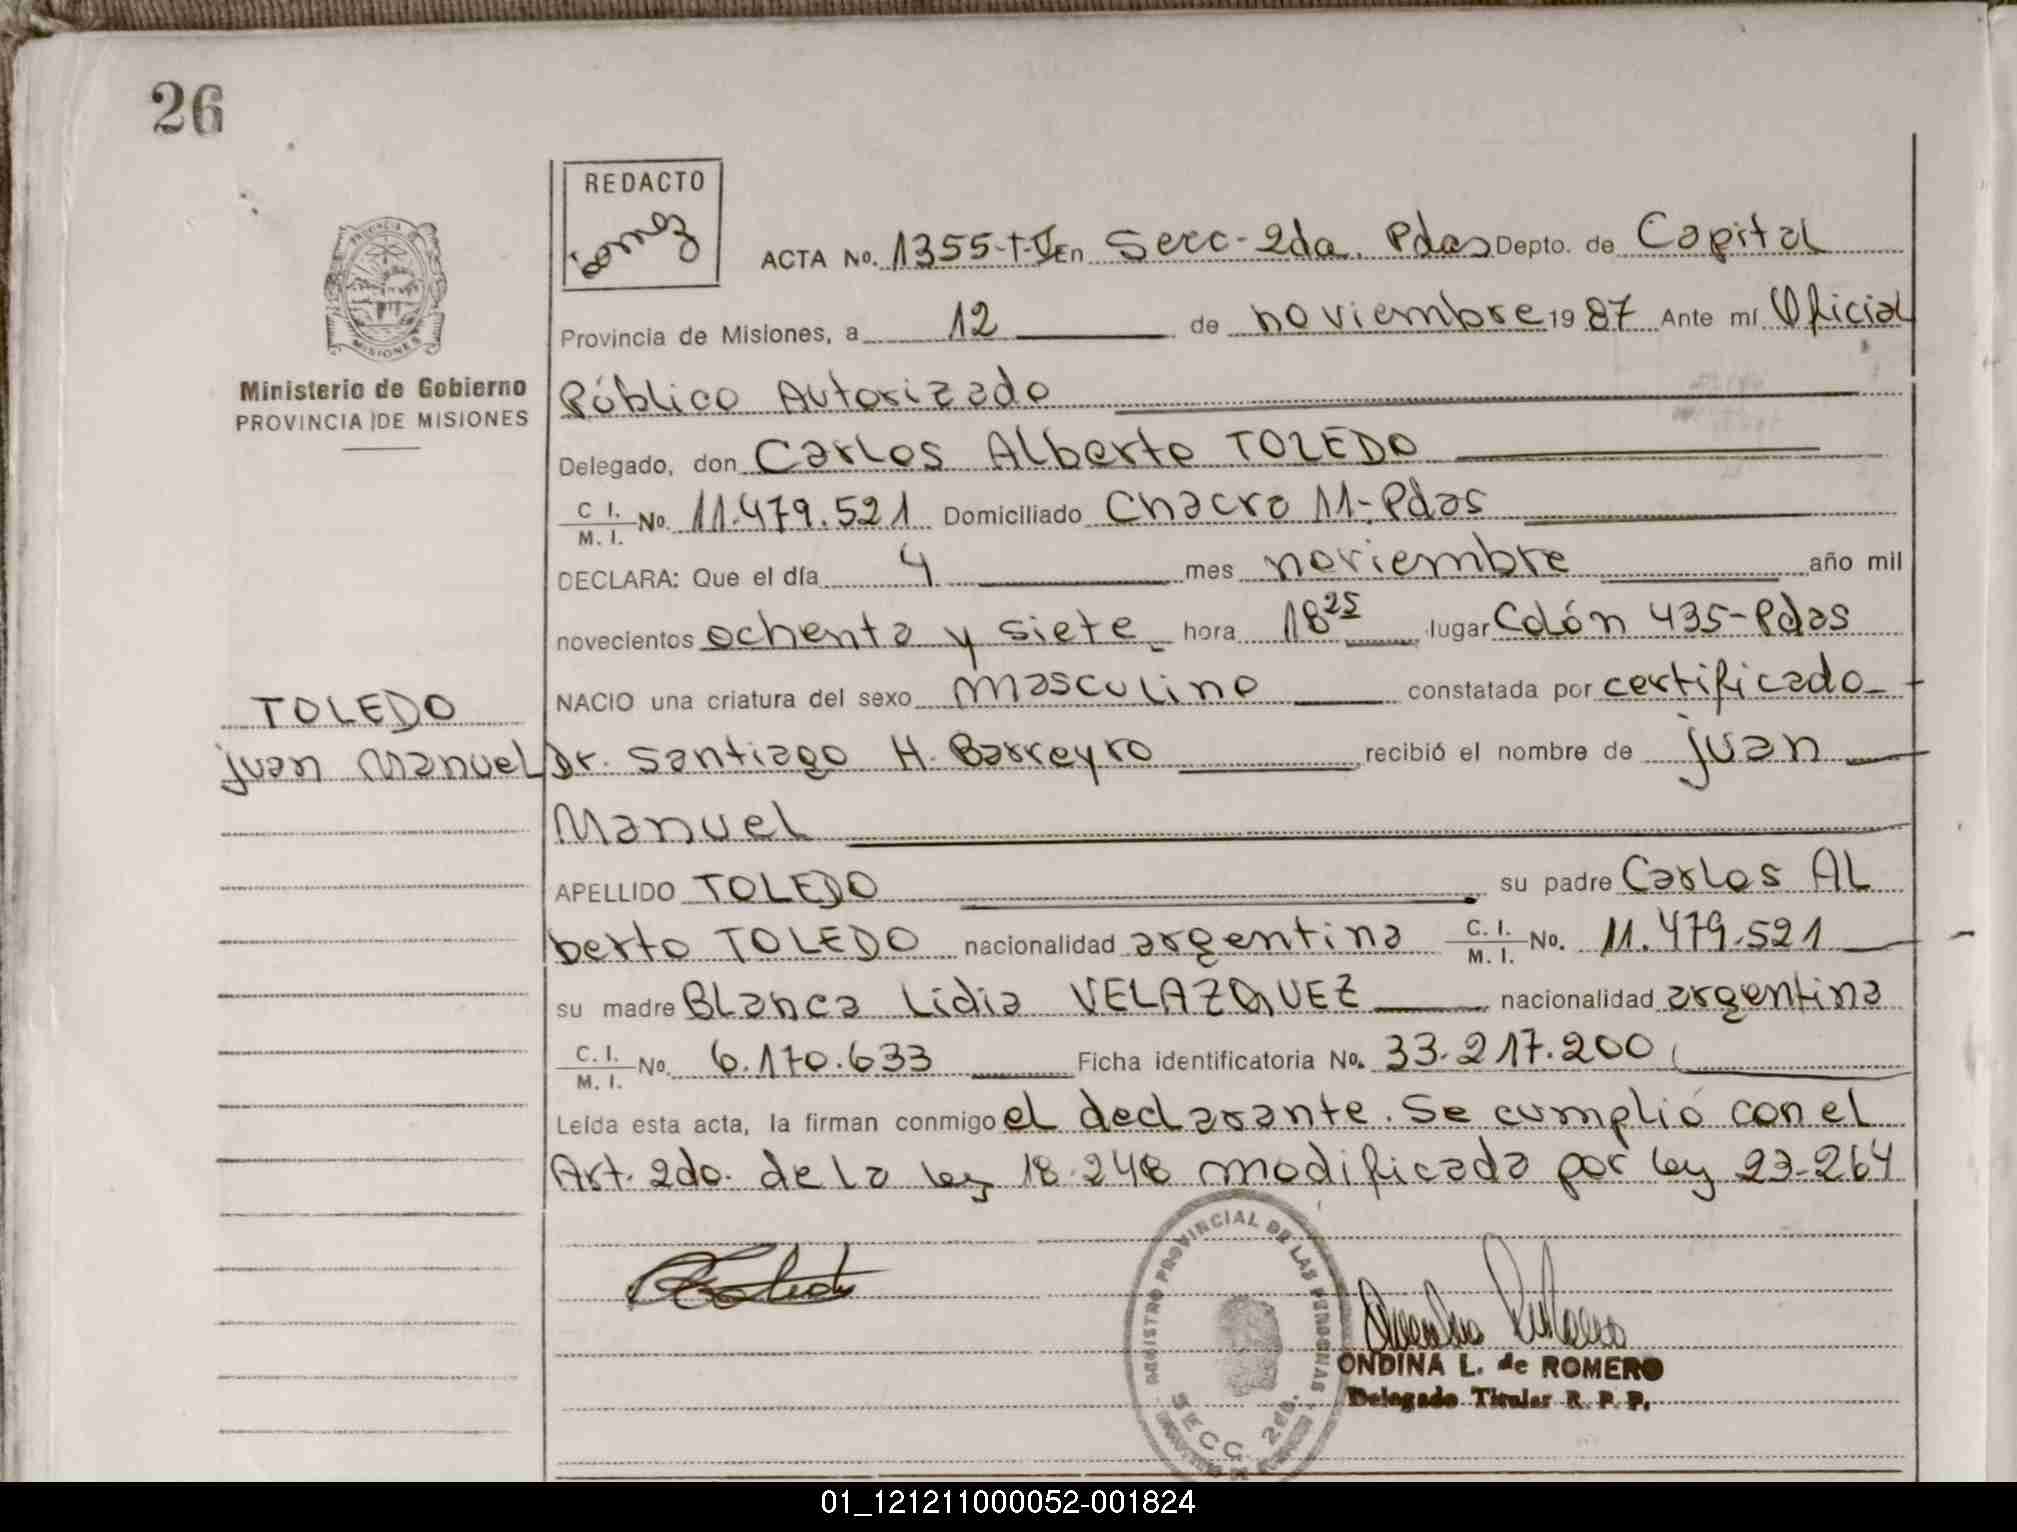 26
REDACTO
Gomez
ACTA No. 1355-T-V En Secc-2da. Pdas Depto. de Capital
Provincia de Misiones, a 12 de noviembre 1987 Ante mí Oficial
Público Autorizado
MISIONES
Ministerio de Gobierno
PROVINCIA DE MISIONES
Delegado, don Carlos Alberto TOLEDO
C I. M. I. No. 11.479.521 Domiciliado Chacra 11-Pdas
DECLARA: Que el día 4 mes noviembre año mil
novecientos ochenta y siete hora 18 25 lugar Colón 435-Pdas
NACIO una criatura del sexo masculino constatada por certificado
TOLEDO
Juan Manuel
Dr. Santiago H. Barreyro recibió el nombre de Juan
Manuel
APELLIDO TOLEDO su padre Carlos AL
berto TOLEDO nacionalidad argentina C. I. M. I. No. 11.479.521
su madre Blanca Lidia VELAZQUEZ nacionalidad argentina
C. I. M. I. No. 6.170.633 Ficha identificatoria No. 33.217.200
Leída esta acta, la firman conmigo el declarante. Se cumplió con el
Art. 2do. de la ley 18.248 modificada por ley 23.264
REGISTRO PROVINCIAL DE LAS PERSONAS
SECC. 2da.
ONDINA L. de ROMERO
Delegado Titular R. P. P.
01_121211000052-001824